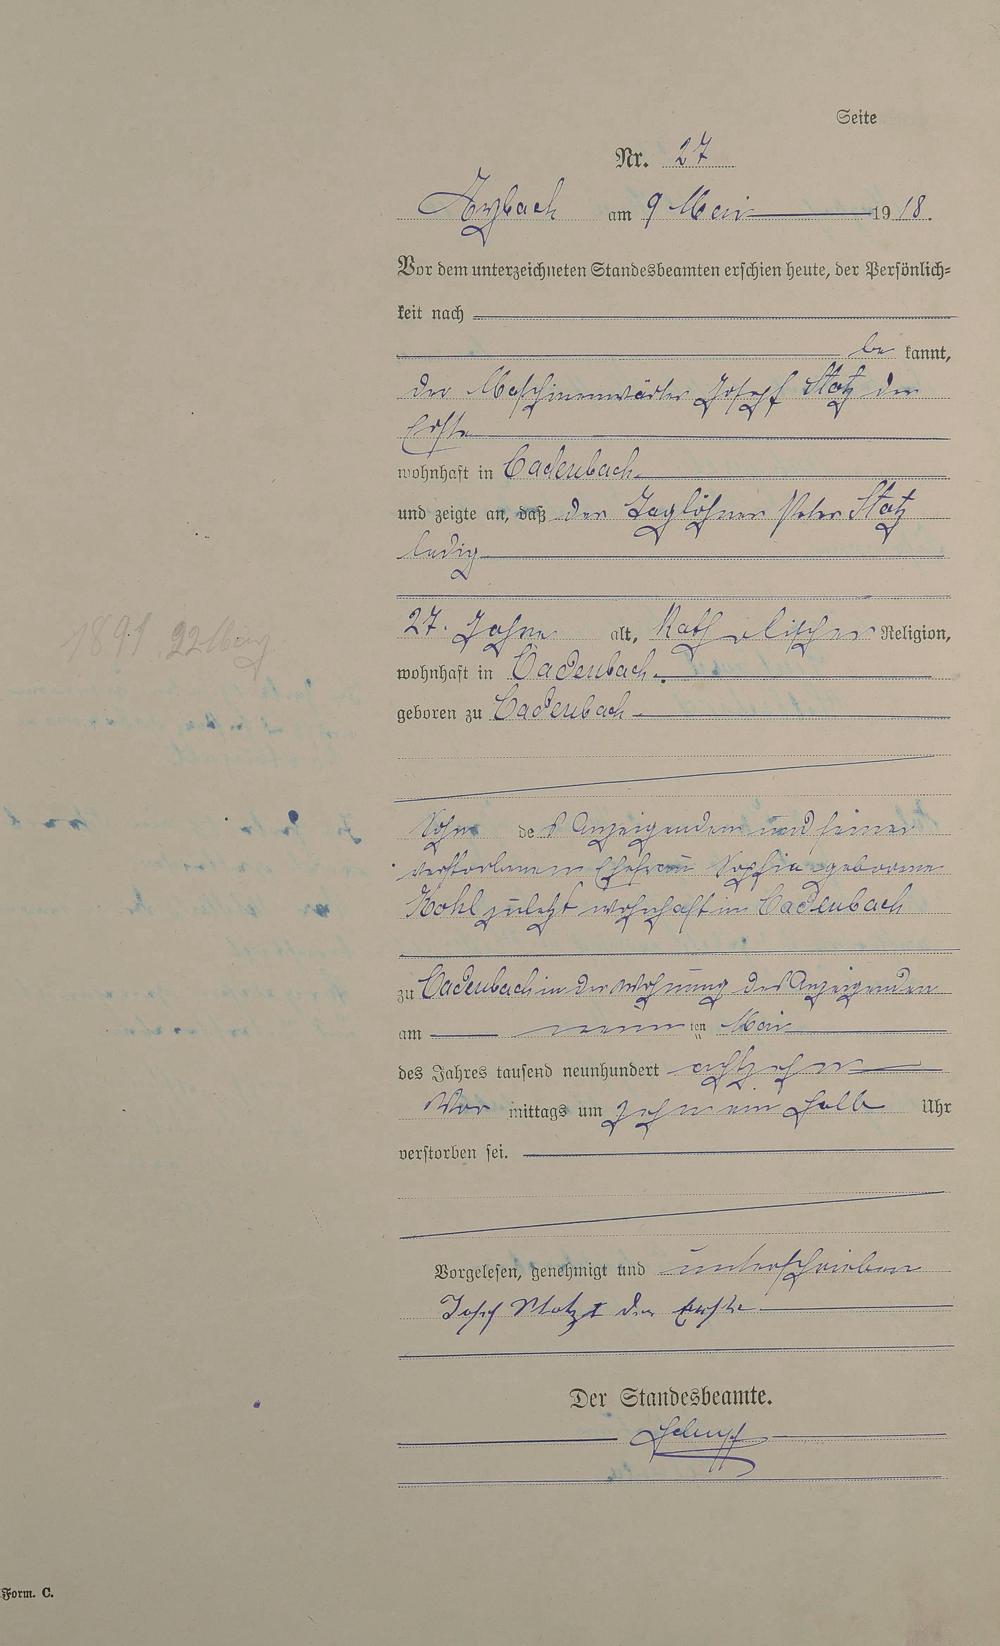 Seite
Nr. 27
Arzbach am 9 Mai 1918.
Vor dem unterzeichneten Standesbeamten erschien heute, der Persönlich=
keit nach
be kannt,
der Maschinenwärter Joseph Stotz der
Erste
wohnhaft in Cadenbach
und zeigte an, daß der Taglöhner Peter Stotz
ledig
27. Jahre alt, Katholischer Religion,
1891 22 May
wohnhaft in Cadenbach
geboren zu Cadenbach
Sohn des Anzeigenden und seiner
verstorbenen Ehefrau Sophia geborene
Kohl zuletzt wohnhaft in Cadenbach
zu Cadenbach in der Wohnung des Anzeigenden
am neun ten Mai
des Jahres tausend neunhundert achtzehn
Vor mittags um zehn ein halb Uhr
verstorben sei.
Vorgelesen, genehmigt und unterschrieben
Josef Stotz I der Erste
Der Standesbeamte.
Form. C.